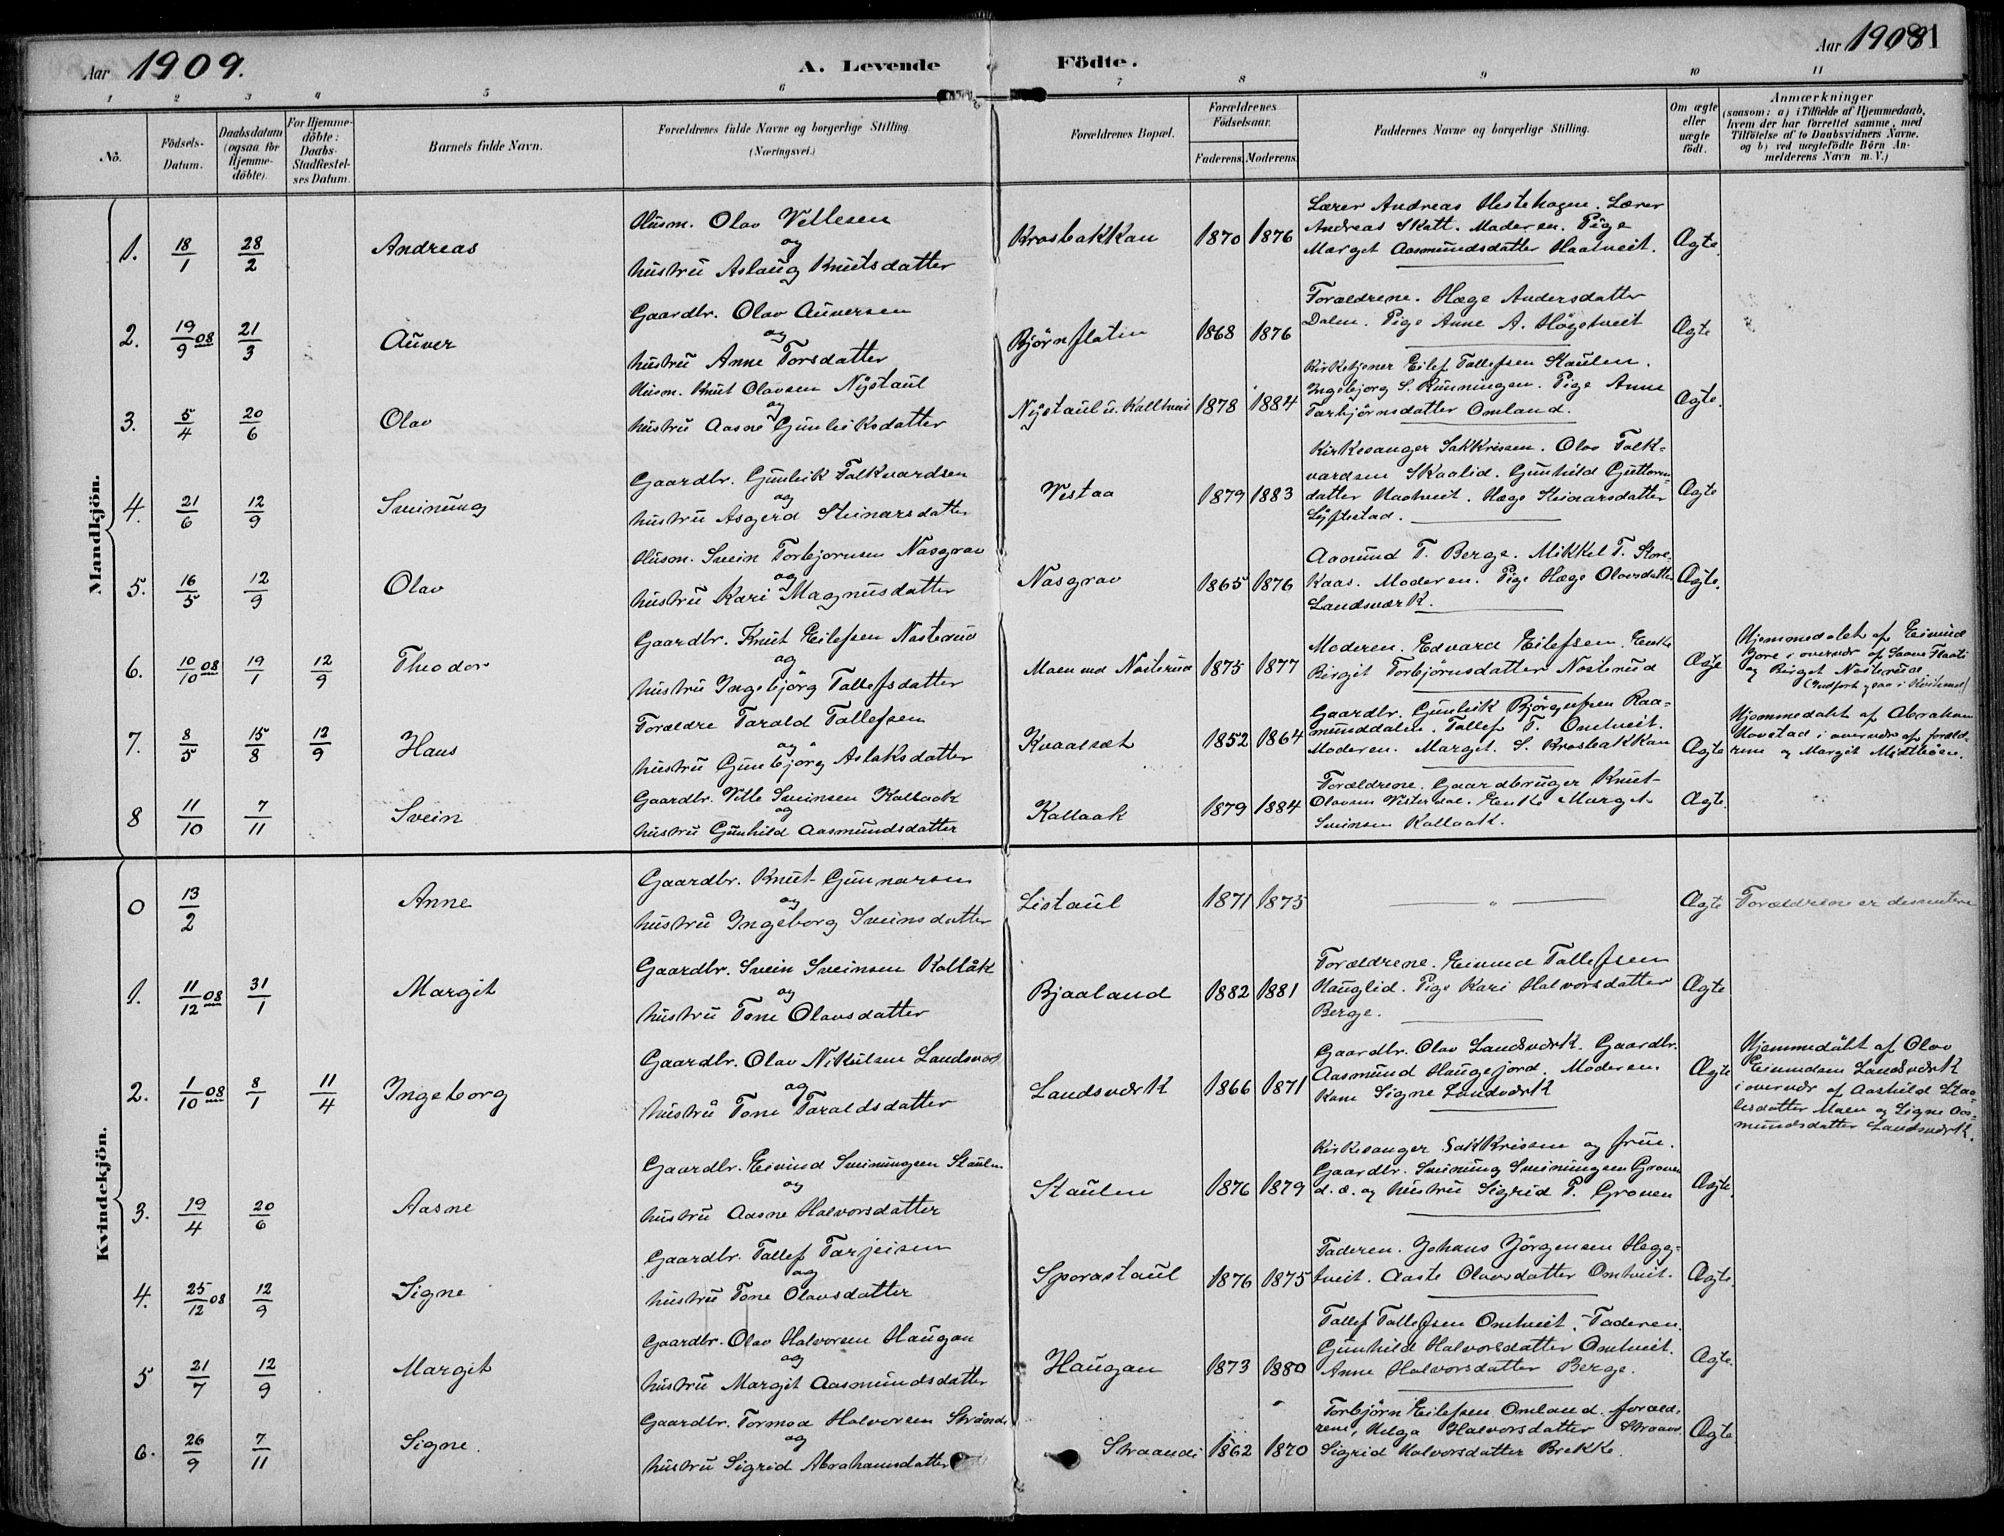 Aar 1909.
A. Levende Födte.
Aar 1909
81
1 2 3 4 5 6 7 8 9 10 11
No.
Födsels-Datum.
Daabsdatum (ogsaa for Hjemme-döbte).
For Hjemme-döbte: Daabs-Stadfæstel-ses Datum.
Barnets fulde Navn.
Forældrenes fulde Navne og borgerlige Stilling. (Næringsvei.)
Forældrenes Bopæl.
Forældrenes Födselsaar.
Faderens. Moderens.
Faddernes Navne og borgerlige Stilling.
Om ægte eller uægte födt.
Anmærkninger
(saasom: a) i Tilfælde af Hjemmedaab, hvem der har forrettet samme, med Tilföielse af to Daabsvidners Navne. og b) ved uægtefödte Börn An-melderens Navn m. V.)
Mandkjön.
1. 18/1 28/2 Andreas
Husm. Olav Vetlesen
og
hustru Aslaug Knutsdatter
Krosbakkan 1870 1876
Lærer Andreas Hestehagen. Lærer
Andreas Skatt. Moderen. Pige
Marget Aasmundsdatter Haatveit.
Ægte.
2. 19/9 08 21/3 Auver
Gaardbr. Olav Auversen
og
hustru Anne Torsdatter
Bjørnflatin 1868 1876
Forældrene. Hæge Andersdatter
Dalen. Pige Anne A. Høgetveit
Ægte
3. 5/4 20/6 Olav
Husm. Knut Olavsen Nystaul
og
hustru Aasne Gunleiksdatter
Nystaul u. Kalltveit 1878 1884
Kirketjener Eilef Tallefsen Staulen.
Ingebjorg S. Runningen. Pige Anne
Tarbjørnsdatter Omland.
Ægte.
4. 21/6 12/9 Sveinung
Gaardbr. Gunleik Folkvardsen
og
hustru Asgerd Steinarsdatter
Vestaa 1879 1883
Kirkesanger Sakkrissen. Olav Folk-
vardsen Skaalid. Gunhild Guttorm-
datter Haatveit. Hæge Steinarsdatter
Lyftestad.
Ægte
5. 16/5 12/9 Olav
Husm. Svein Torbjørnsen Nasgrav
og
hustru Kari Magnusdatter
Nasgrav 1865 1876
Aamund T. Berge. Mikkel T. Store-
Kaas. Moderen. Pige Hæge Olavsdatter
Landsværk.
Ægte.
6. 10/10 08 19/1 12/9 Theodor
Gaardbr. Knut Eilefsen Nosterud
og
hustru Ingebjörg Tallefsdatter
Moen ved Nosterud 1875 1877
Moderen. Edvard Eilefsen. Enke
Birgit Torbjørnsdatter Nosterud
Ægte
Hjemmedøbt af Eivind
Jore i overvær af Saave Flaati
og Birgit Nosterud.
7. 8/5 15/8 12/9 Hans
Forældre Tarald Tallefsen
og
hustru Gunbjörg Aslaksdatter
Kvaalsæt 1852 1864
Gaardbr. Gunleik Bjørgufsen Raa-
munddalen. Tallef T. Omtveit.
Moderen. Marget. S. Krosbakkan
Ægte
Hjemmedøbt af Abraham
Hovstad i overvær af foræld-
rene og Margit Midtbøen.
8 11/10 7/11 Svein
Gaardbr. Vetle Sveinsen Kallaak
og
hustru Gunhild Aasmundsdatter
Kallaak 1879 1884
Forældrene. Gaardbruger Knut
Olavsen Vesterdal. Enke Marget
Sveinsen Kallaak.
Ægte.
Kvindekjön.
0 13/2 Anne
Gaardbr. Knut Gunnarsen
og
hustru Ingeborg Sveinsdatter
Listaul 1871 1875
— " —
Ægte
Forældrene er dissentere
1. 11/12 08 31/1 Margit
Gaardbr. Svein Sveinsen Kallåk
og
hustru Tone Olavsdatter
Bjaaland 1882 1881
Forældrene. Eivind Tallefsen
Hauglid. Pige Kari Halvorsdatter
Berge.
Ægte
2. 1/10 08 8/1 11/4 Ingeborg
Gaardbr. Olav Nikulsen Landsværk
og
hustru Tone Taraldsdatter
Landsværk 1866 1871
Gaardbr. Olav Landsværk. Gaardbr.
Aasmund Haugejord. Moderen.
Kone Signe Landsværk
Ægte
Hjemmedøbt af Olav
Eivindsen Landsværk
i overvær af Aashild Staa-
lesdatter Moen og Signe Aas-
mundsdatter Landsværk.
3. 19/4 20/6 Aasne
Gaardbr. Eivind Sveinungsen Staulen
og
hustru Aasne Halvorsdatter
Staulen 1876 1879
Kirkesanger Sakkrissen og frue.
Gaardbr. Sveinung Sveinungsen Groven
d. æ. og hustru Sigrid T. Groven
Ægte.
4. 25/12 08 12/9 Signe
Gaardbr. Tallef Tarjeisen
og
hustru Tone Olavsdatter
Sporastaul 1876 1875
Faderen. Johans Jörgensen Hegg-
tveit. Aaste Olavsdatter Omtveit.
Ægte.
5 21/7 12/9 Margit
Gaardbr. Olav Halvorsen Haugan
og
hustru Margit Aasmundsdatter
Haugan 1873 1880
Tallef Tallefsen Omtveit. Faderen.
Gunhild Halvorsdatter Omtveit.
Anne Halvorsdatter Berge.
Ægte.
6. 26/9 7/11 Signe.
Gaardbr. Tormod Halvorsen Strånde
og
hustru Sigrid Abrahamsdatter
Straande 1862 1870
Torbjörn Eilefsen Omland. foræld-
rene, Helga Halvorsdatter Straand
Sigrid Halvorsdatter Brekke
Ægte